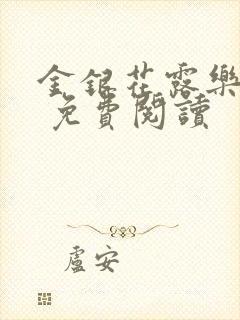 金銀花露樂
免費閱讀
盧安